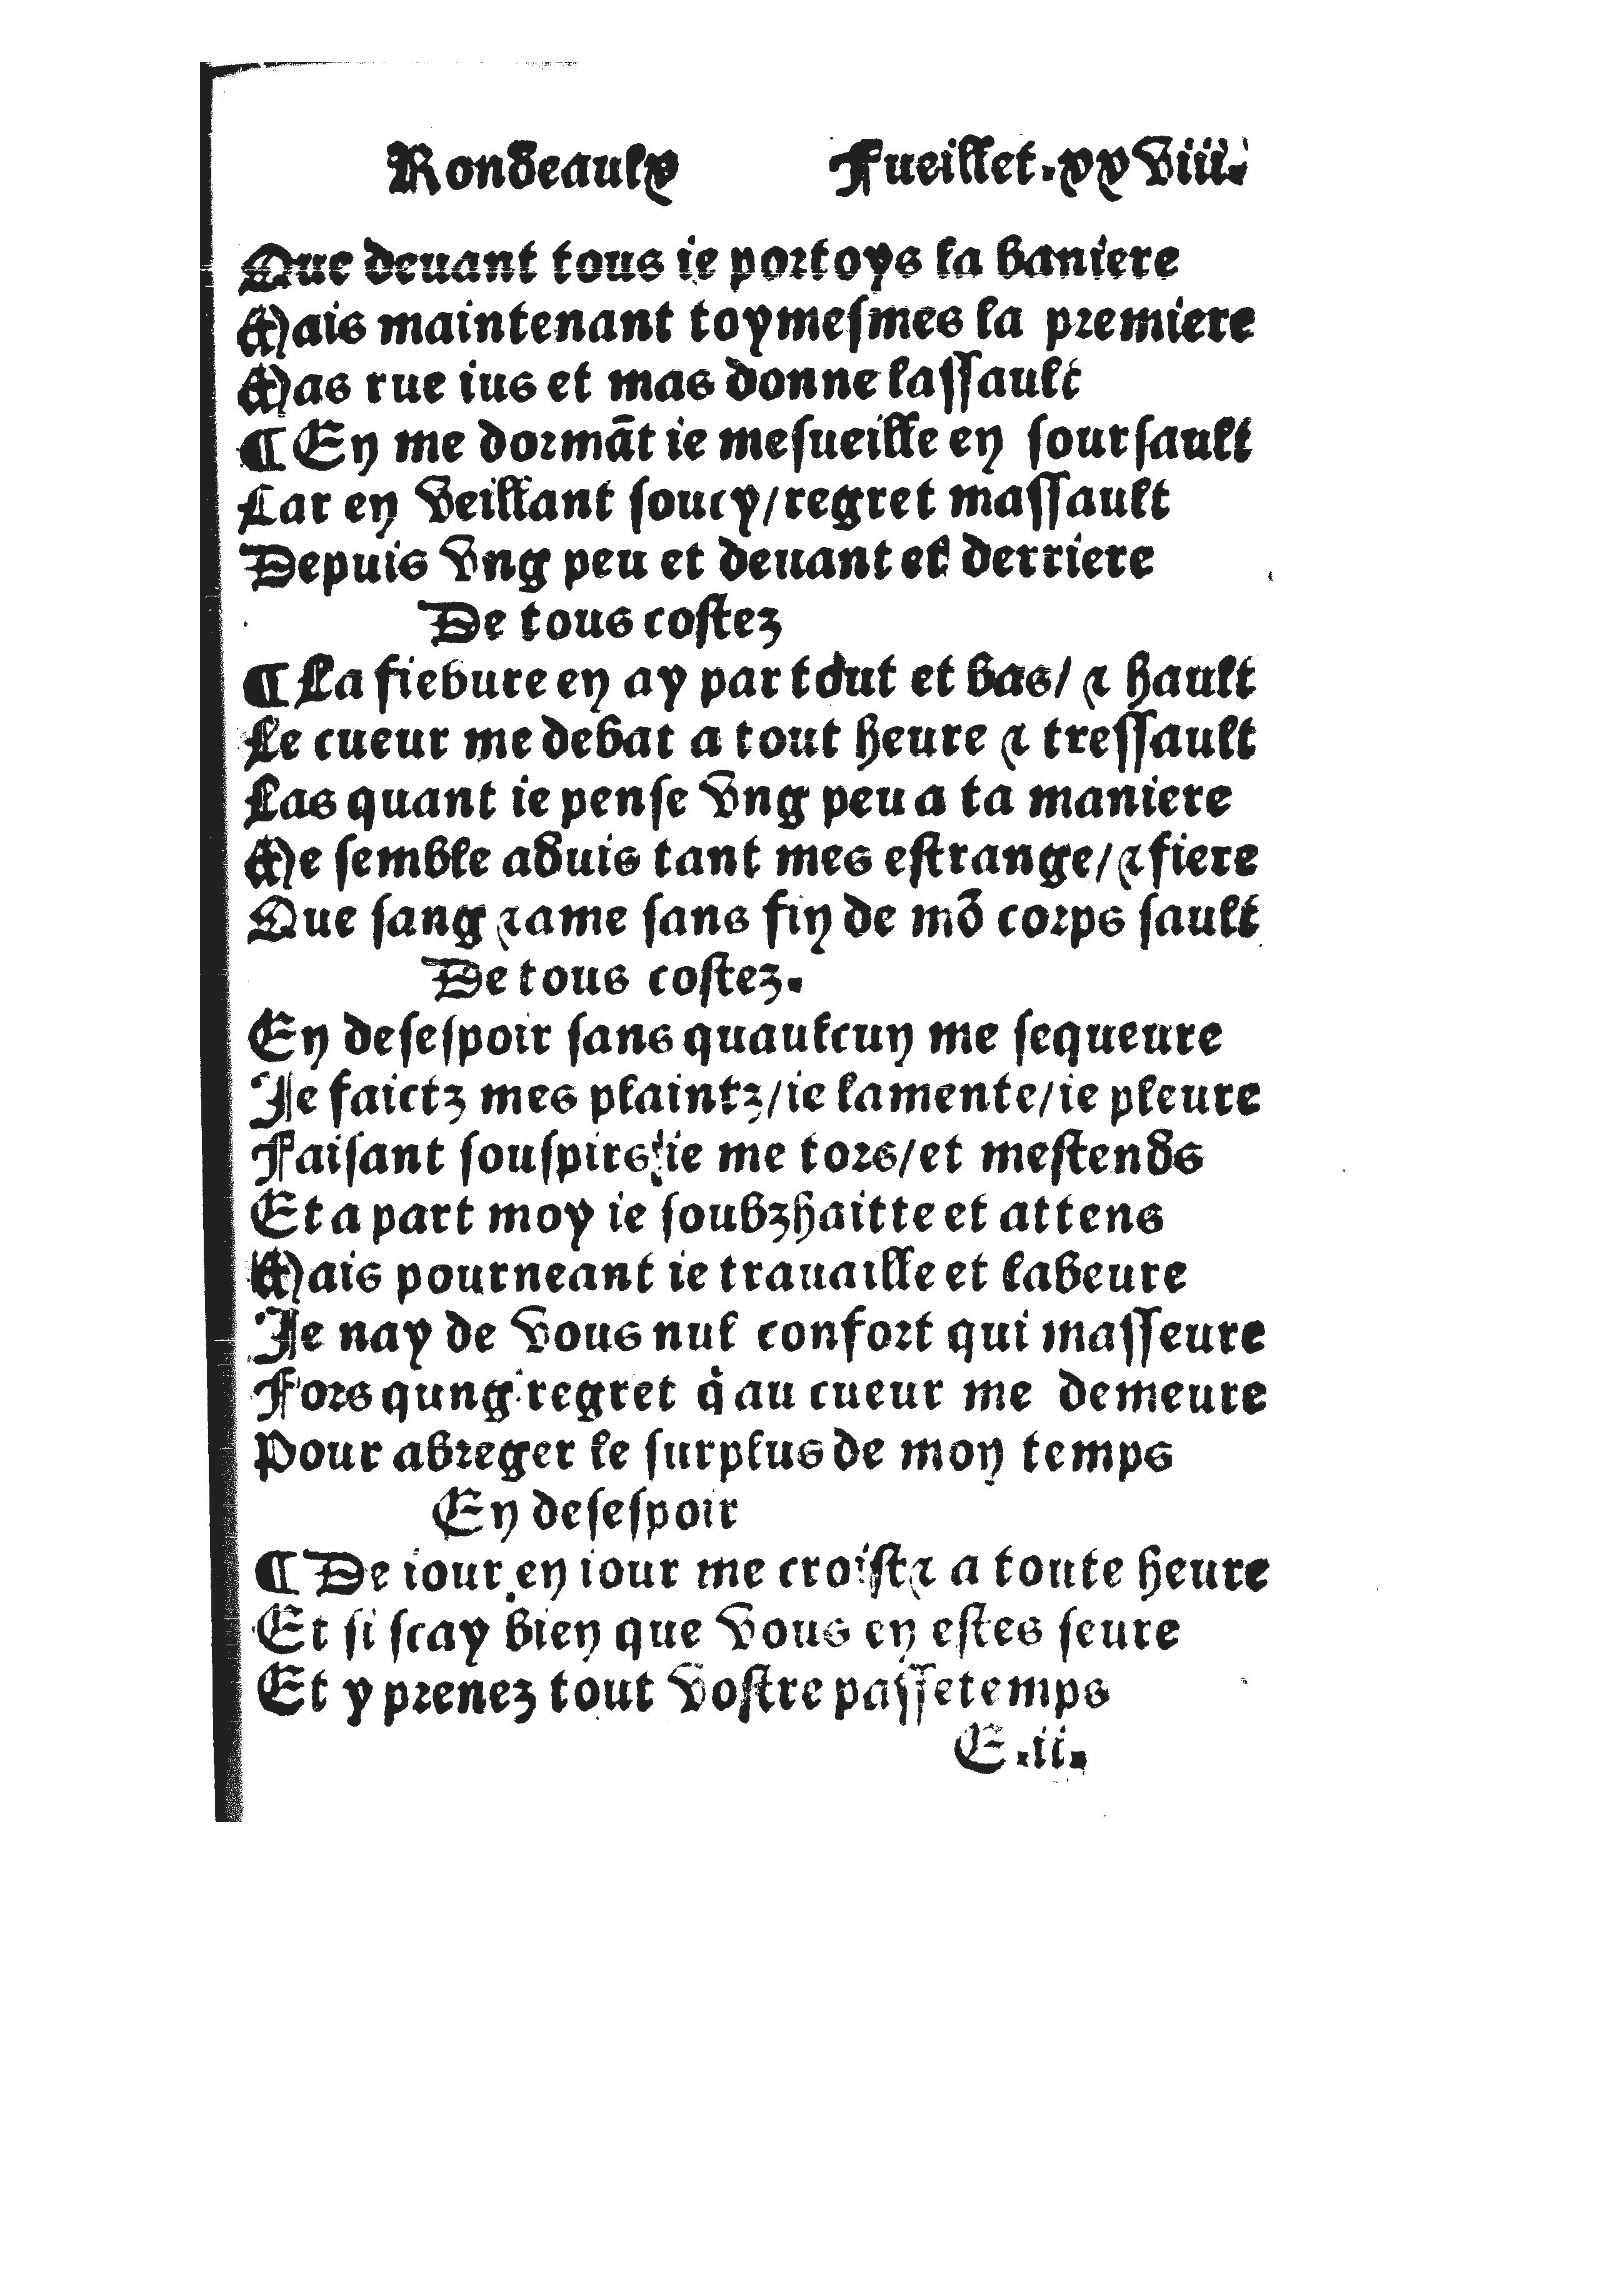 Rondeaulx Fueillet.xxviii.
Que deuant tous ie portoys la baniere
Mais maintenant toymesmes la premiere
Mas rue ius et mas donne lassault
¶ En me dormãt ie mesueille en soursault
Car en veillant soucy/regret massault
Depuis vng peu et deuant et derriere
De tous costez
¶ La fiebure en ay par tout et bas/ ⁊ hault
Le cueur me debat a tout heure ⁊ tressault
Las quant ie pense vng peu a ta maniere
Me semble aduis tant mes estrange/⁊ fiere
Que sang ⁊ ame sans fin de mõ corps sault
De tous costez.
En desespoir sans quaulcun me sequeure
Je faictz mes plaintz/ie lamente/ie pleure
Faisant souspirs/ie me tors/et mestends
Et a part moy ie soubzhaitte et attens
Mais pourneant ie trauaille et labeure
Je nay de vous nul confort qui masseure
Fors qung regret q̇ au cueur me demeure
Pour abreger le surplus de mon temps
En desespoir
¶ De iour en iour me croist ⁊ a toute heure
Et si scay bien que vous en estes seure
Et y prenez tout vostre passetemps
E.ii.